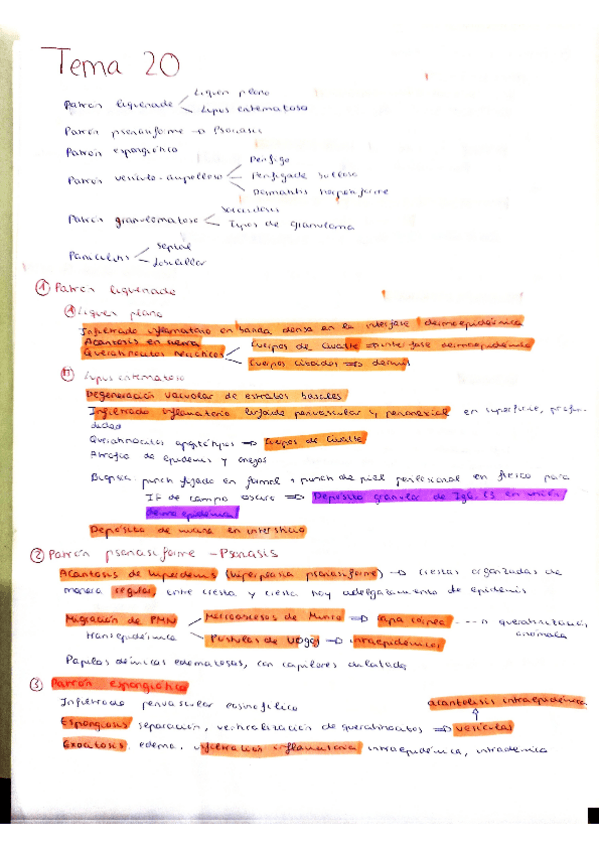 Tema 20
Patrón liquenoide
Liquen plano
Lupus eritematoso
Patrón psoriasiforme → Psoriasis
Patrón espongiótico
Patrón vesículo-ampolloso
Pénfigo
Penfigoide bulloso
Dermatitis herpetiforme
Patrón granulomatoso
Sarcoidosis
Tipos de granuloma
Paniculitis
Septal
Lobulillar
① Patrón liquenoide
Liquen plano
Infiltrado inflamatorio en banda densa en la interfase dermoepidérmica
Acantosis en sierra
Queratinocitos necróticos
Cuerpos de Civatte ⇒ interfase dermoepidérmica
Cuerpos citoides ⇒ dermis
⑪ Lupus eritematoso
Degeneración vacuolar de estratos basales
Infiltrado inflamatorio linfoide perivascular y perianexial en superficie, profun-
didad
Queratinocitos apoptóticos ⇒ Cuerpos de Civatte
Atrofia de epidermis y anejos
Biopsia: punch fijado en formol + punch de piel perilesional en fresco para
IF de campo oscuro ⇒ Depósito granular de IgG, C3 en unión
dermoepidérmica
Depósito de mucina en intersticio
② Patrón psoriasiforme - Psoriasis
Acantosis de hiperdermis (hiperplasia psoriasiforme) → crestas organizadas de
manera regular, entre cresta y cresta hay adelgazamiento de epidermis
Migración de PMN
transepidérmica
Microabscesos de Munro ⇒ capa córnea queratinización
anómala
Pústulas de Kogoj ⇒ intraepidérmicos
Papilas dérmicas edematosas, con capilares dilatados
③ Patrón espongiótico
Infiltrado perivascular eosinofílico
acantolisis intraepidérmica
↑
Espongiosis: separación, verticalización de queratinocitos ⇒ vesículas
Exocitosis: edema, infiltración inflamatoria intraepidérmica, intradérmica